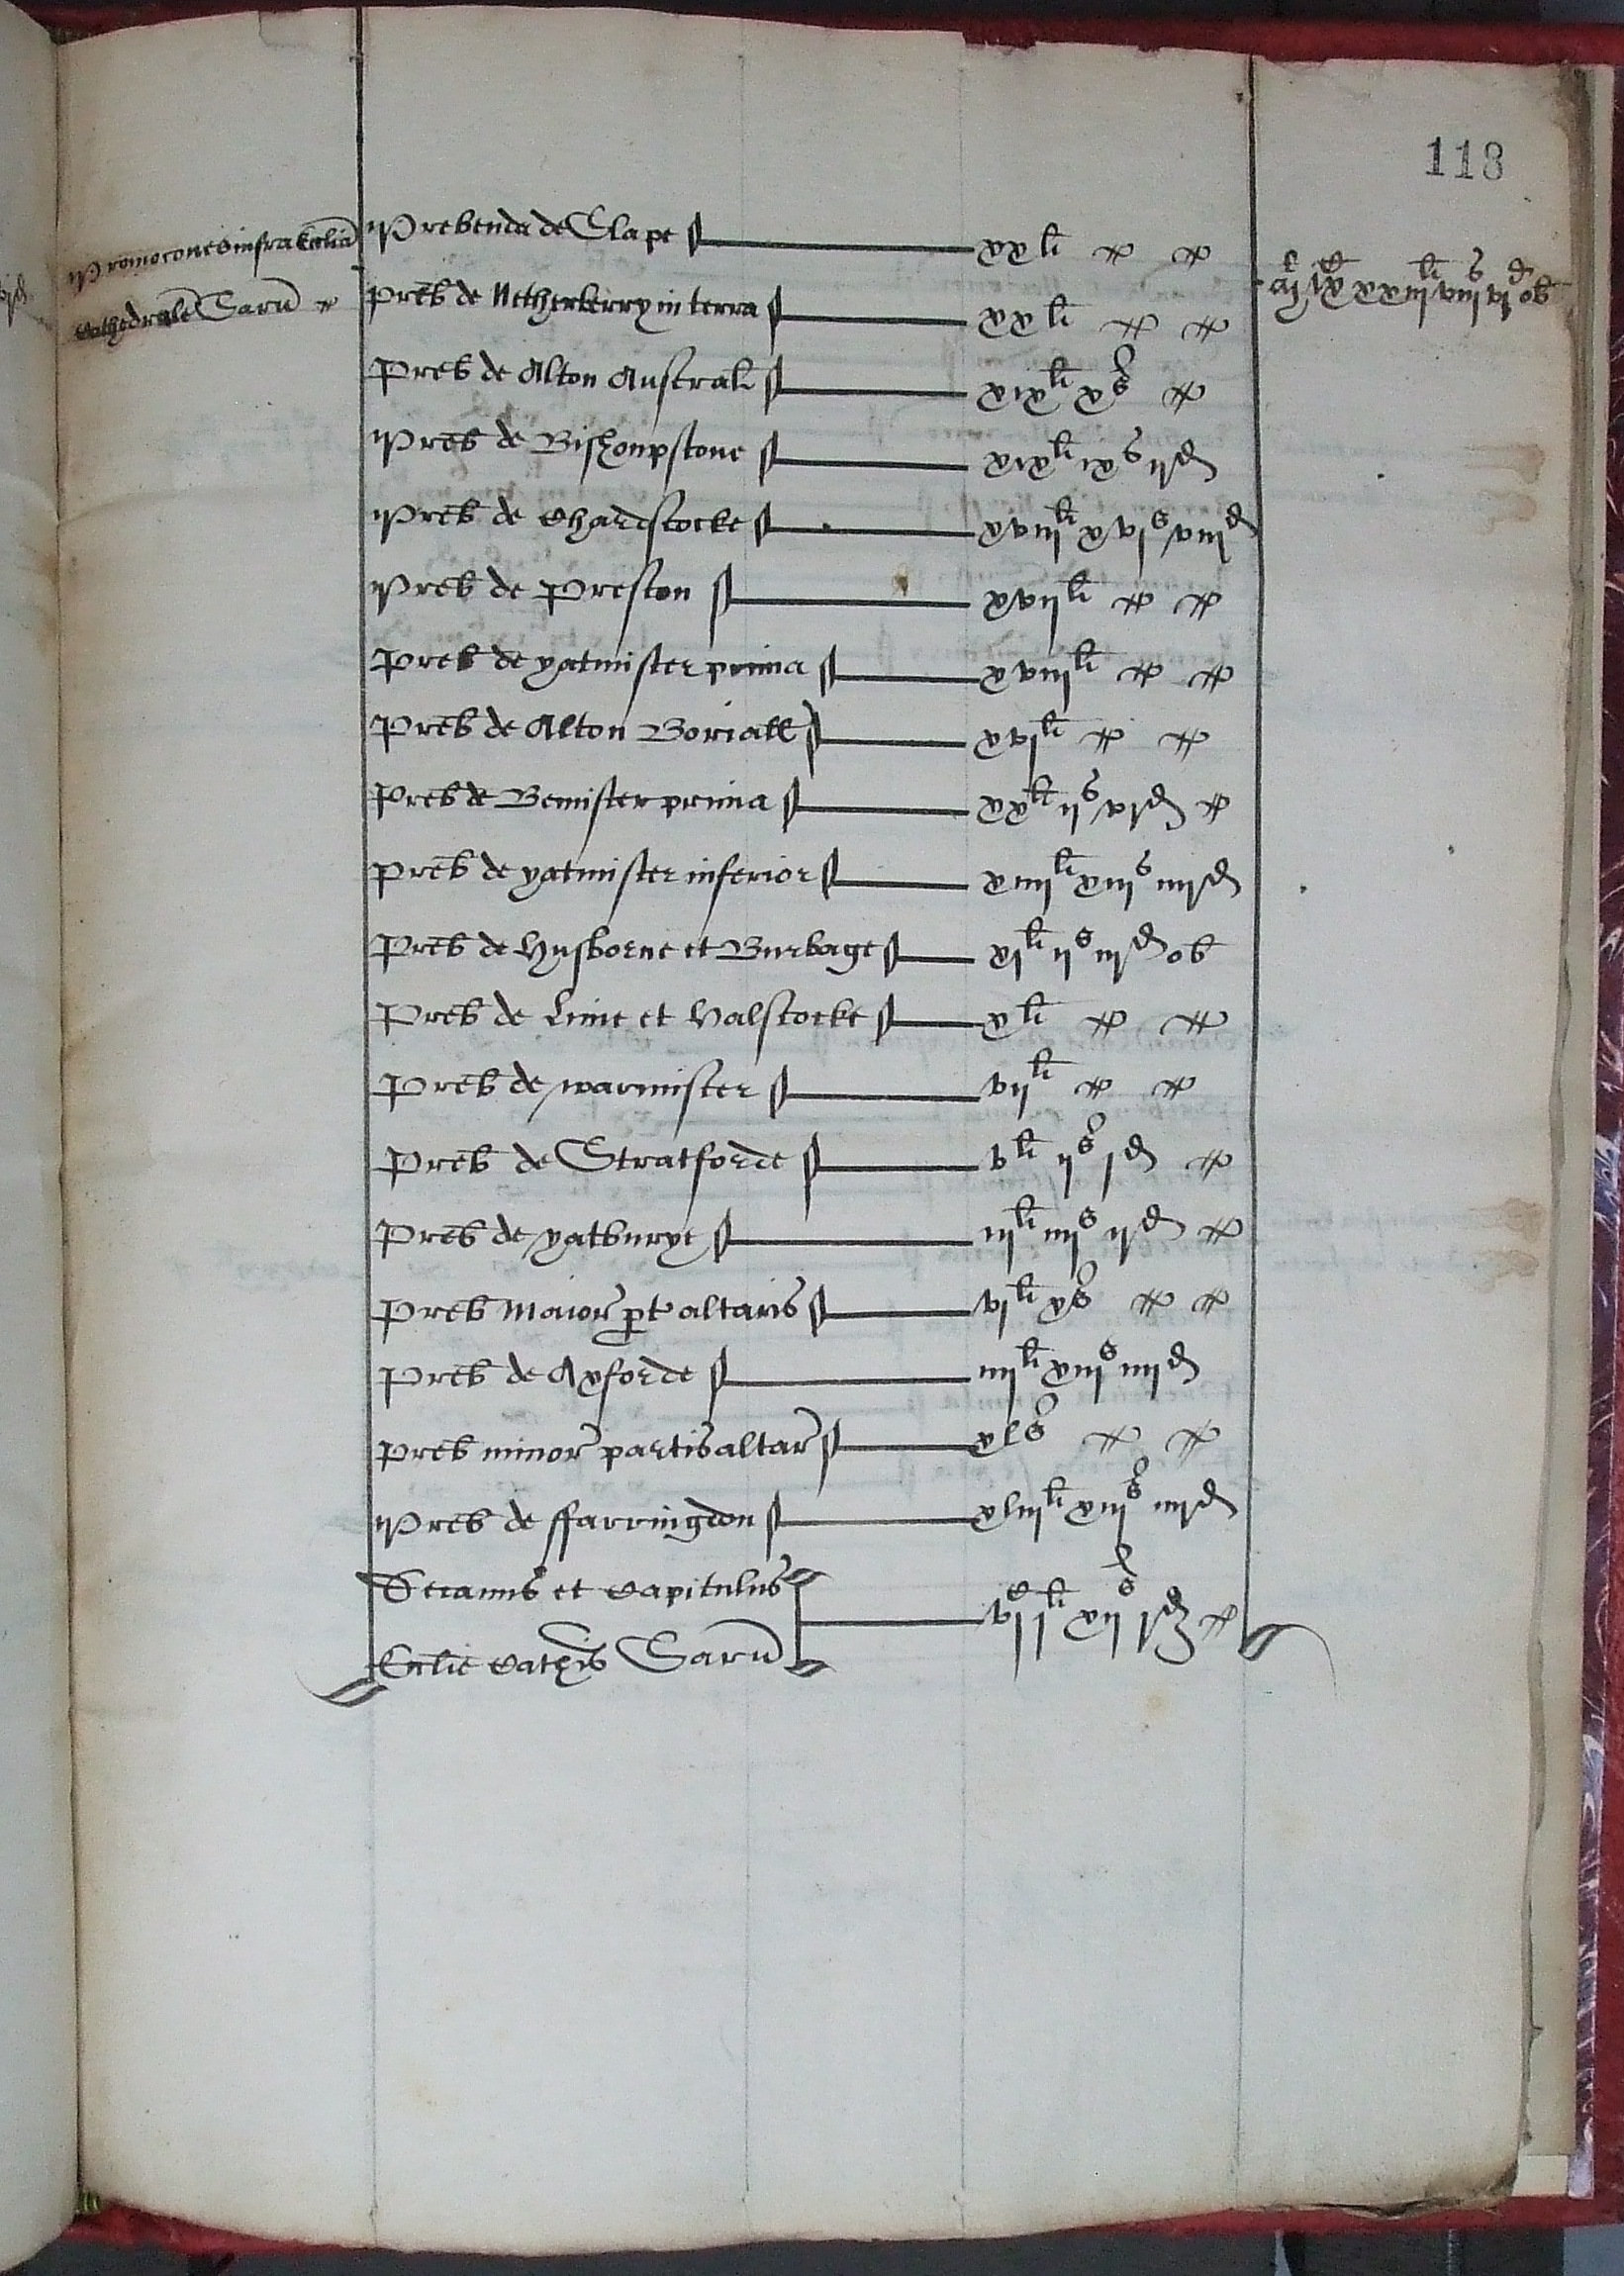 118
Promocones infra Eccliã
Cathedralẽ Sarũ
Prebenda de Slape xxli
Preb̃ de Netherberry in terra xxli
Preb̃ de Alton Australi xixli xs
Preb̃ de Bishoupstone xixli ixs ijd
Preb̃ de Chardstocke xviijli xvjs viijd
Preb̃ de Preston xvijli
Preb̃ de yatmister prima xviijli
Preb̃ de Alton Boriall xvjli
Preb̃ de Bemister prima xxli ijs vjd
Preb̃ de yatmister inferior xiiijli xiijs iiijd
Preb̃ de Husborne et Burbage xjli ijs iijd ob
Preb̃ de Lime et Halstocke xli
Preb̃ de warmister vijli
Preb̃ de Stratforde vli ijs jd
Preb̃ de yatburye iijli iiijs ijd
Preb̃ Maior p̱t altaris vjli xs
Preb̃ de Axforde iiijli xiijs iiijd
Preb̃ minor partis altar xls
Preb̃ de ffarringdon xliijli xiijs iiijd
Decanus et Capitulus
Ecclie Cathis Sarũ xijs jd